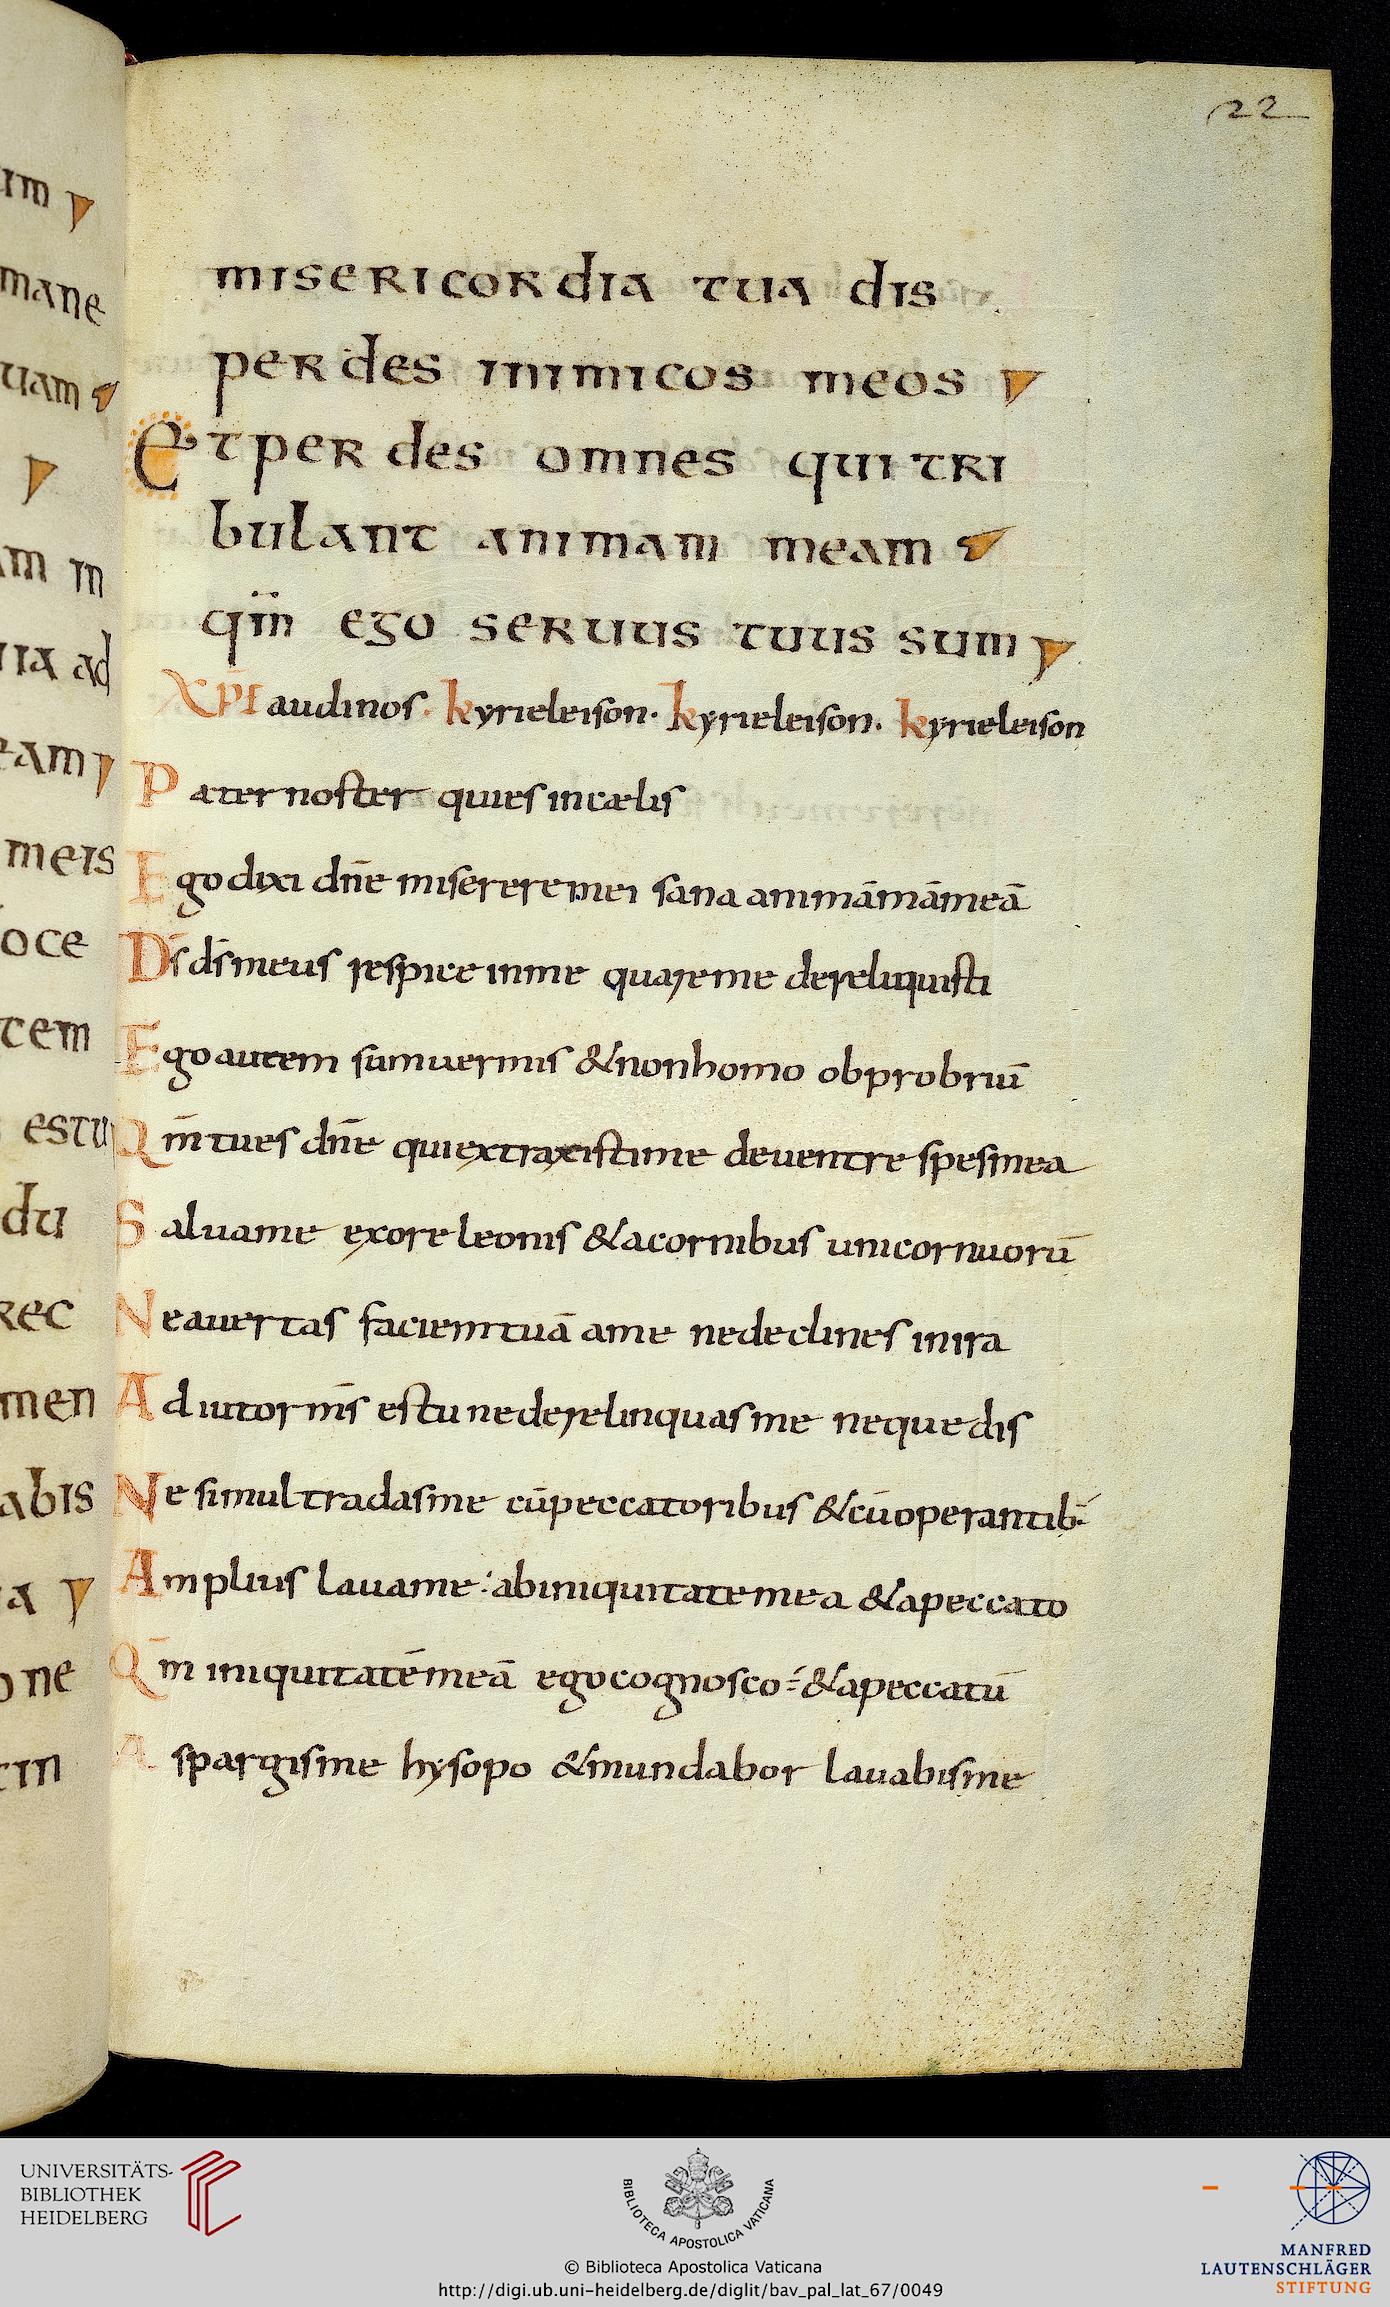 22
misericordia tua dis
perdes inimicos meos
Et perdes omnes qui tri
bulant animam meam
qm̄ ego seruus tuus sum
XPI audinos. kyrieleison. kyrieleison. kyrieleison
Pater noster qui es in cælis
Ego dixi dñe miserere mei sana animā māmeā
D̄s d̄s meus respice in me quare me dereliquisti
Ego autem sum uermis & non homo obprobriū
Qm̄ tu es dñe qui extraxisti me de uentre spes mea
Salua me ex ore leonis & a cornibus unicornuorū
Ne auertas faciem tuā a me ne declines in ira
Adiutor m̄s es tu ne derelinquas me neque dis
Ne simul tradas me cū peccatoribus & cū operantib:
Amplius laua me: ab iniquitate mea & a peccato
Qm̄ iniquitatē meā ego cognosco & a peccatū
Aspargis me hysopo & mundabor lauabis me
im
mane
uam
am in
ria ad
eam
meis
oce
tem
estu
du
rec
men
abis
a
one
tin
UNIVERSITÄTS-
BIBLIOTHEK
HEIDELBERG
BIBLIOTECA APOSTOLICA VATICANA
© Biblioteca Apostolica Vaticana
http://digi.ub.uni-heidelberg.de/diglit/bav_pal_lat_67/0049
MANFRED
LAUTENSCHLÄGER
STIFTUNG